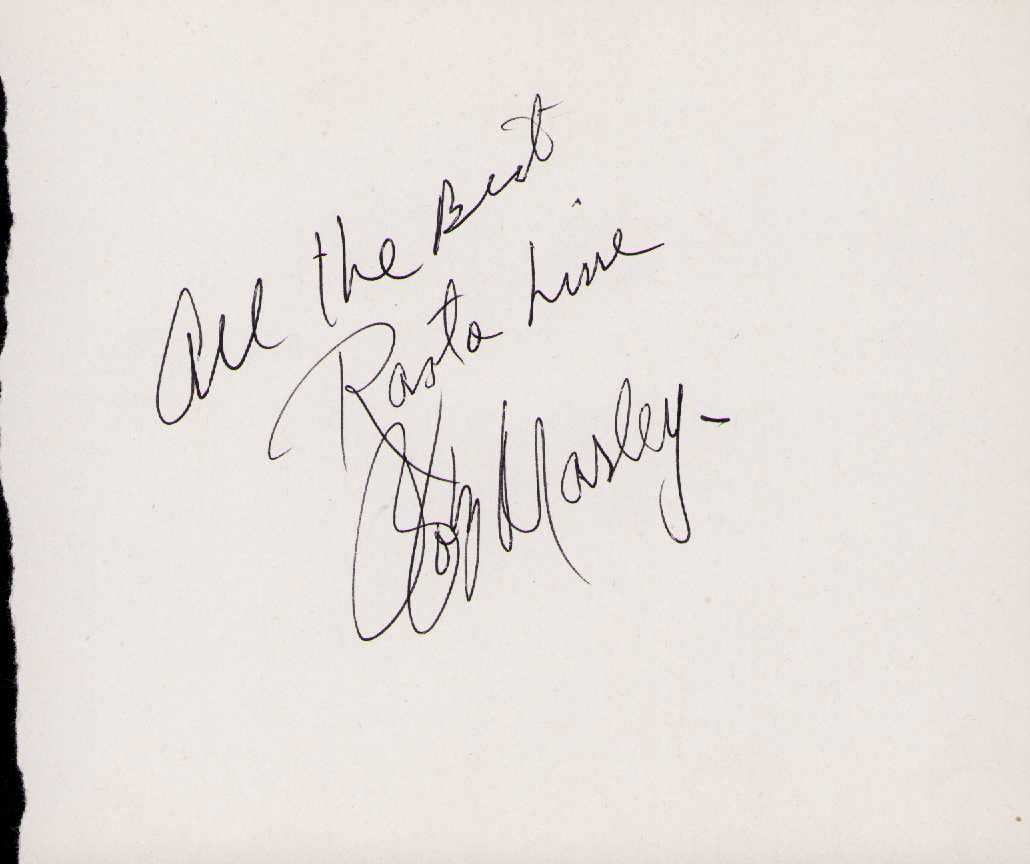 All the Best
Rasta Line
Bob Marley -